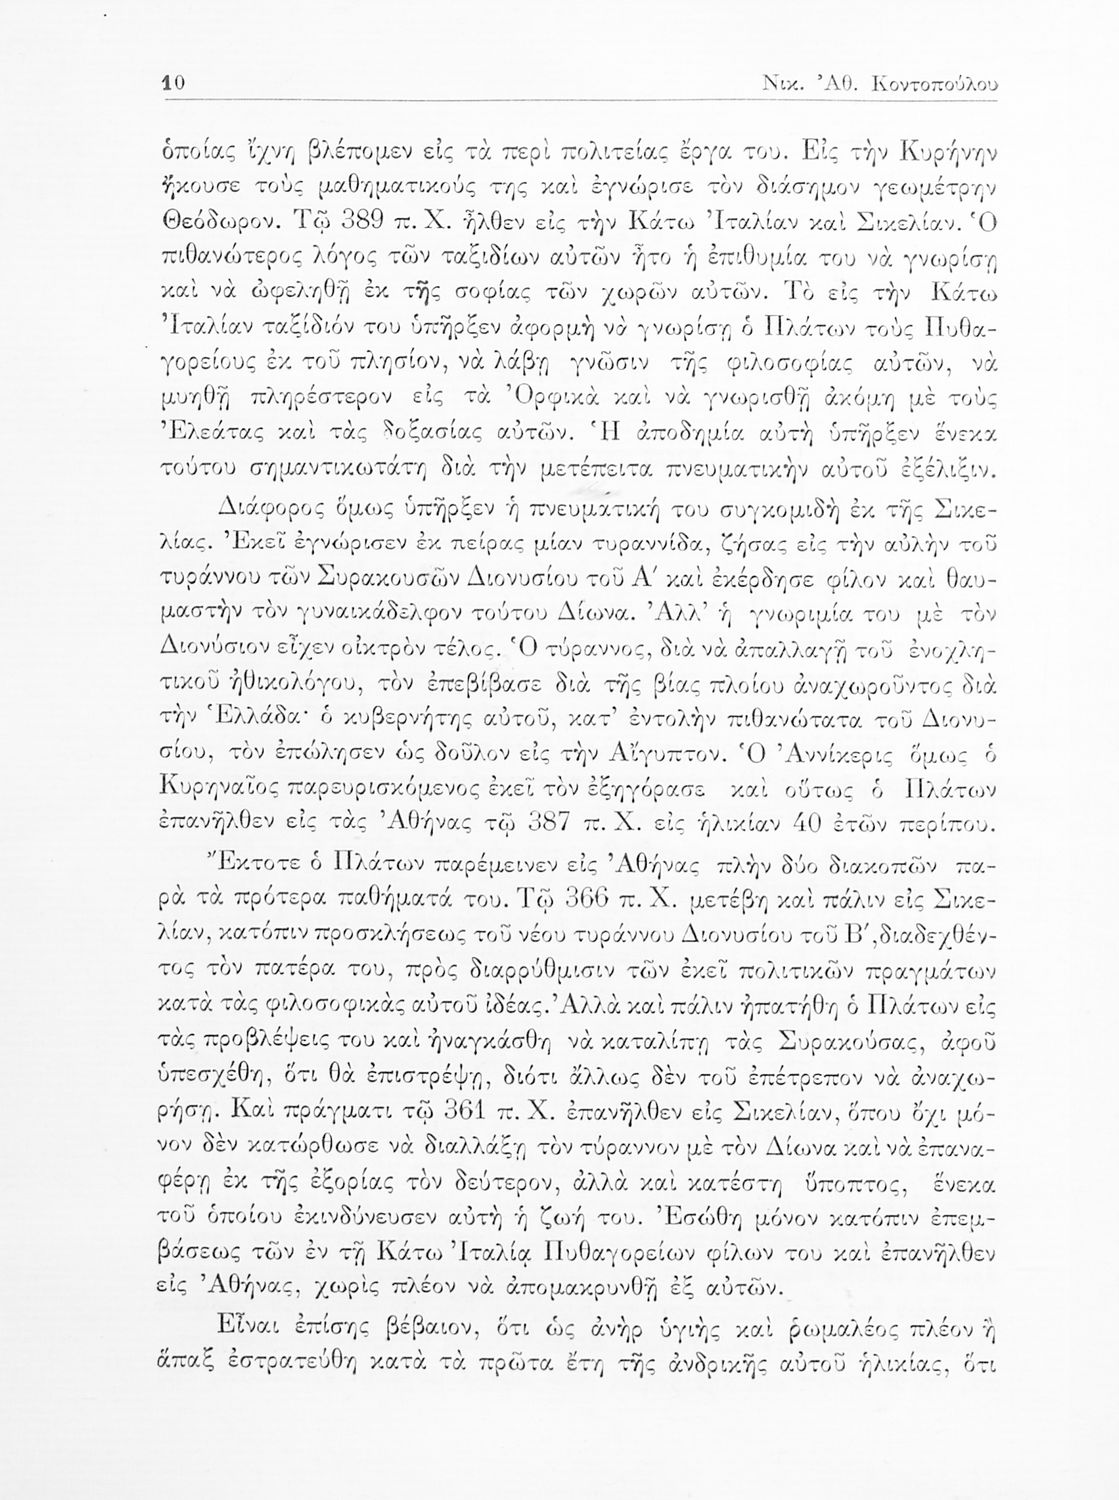 10 Νικ. Ἀθ. Κοντοπούλου
ὁποίας ἴχνη βλέπομεν εἰς τὰ περὶ πολιτείας ἔργα του. Εἰς τὴν Κυρήνην
ἤκουσε τοὺς μαθηματικούς της καὶ ἐγνώρισε τὸν διάσημον γεωμέτρην
Θεόδωρον. Τῷ 389 π. Χ. ἦλθεν εἰς τὴν Κάτω Ἰταλίαν καὶ Σικελίαν. Ὁ
πιθανώτερος λόγος τῶν ταξιδίων αὐτῶν ἦτο ἡ ἐπιθυμία του νὰ γνωρίσῃ
καὶ νὰ ὠφεληθῇ ἐκ τῆς σοφίας τῶν χωρῶν αὐτῶν. Τὸ εἰς τὴν Κάτω
Ἰταλίαν ταξίδιόν του ὑπῆρξεν ἀφορμὴ νὰ γνωρίσῃ ὁ Πλάτων τοὺς Πυθα-
γορείους ἐκ τοῦ πλησίον, νὰ λάβῃ γνῶσιν τῆς φιλοσοφίας αὐτῶν, νὰ
μυηθῇ πληρέστερον εἰς τὰ Ὀρφικὰ καὶ νὰ γνωρισθῇ ἀκόμη μὲ τοὺς
Ἐλεάτας καὶ τὰς δοξασίας αὐτῶν. Ἡ ἀποδημία αὐτὴ ὑπῆρξεν ἕνεκα
τούτου σημαντικωτάτη διὰ τὴν μετέπειτα πνευματικὴν αὐτοῦ ἐξέλιξιν.
Διάφορος ὅμως ὑπῆρξεν ἡ πνευματική του συγκομιδὴ ἐκ τῆς Σικε-
λίας. Ἐκεῖ ἐγνώρισεν ἐκ πείρας μίαν τυραννίδα, ζήσας εἰς τὴν αὐλὴν τοῦ
τυράννου τῶν Συρακουσῶν Διονυσίου τοῦ Α′ καὶ ἐκέρδησε φίλον καὶ θαυ-
μαστὴν τὸν γυναικάδελφον τούτου Δίωνα. Ἀλλ’ ἡ γνωριμία του μὲ τὸν
Διονύσιον εἶχεν οἰκτρὸν τέλος. Ὁ τύραννος, διὰ νὰ ἀπαλλαγῇ τοῦ ἐνοχλη-
τικοῦ ἠθικολόγου, τὸν ἐπεβίβασε διὰ τῆς βίας πλοίου ἀναχωροῦντος διὰ
τὴν Ἑλλάδα· ὁ κυβερνήτης αὐτοῦ, κατ’ ἐντολὴν πιθανώτατα τοῦ Διονυ-
σίου, τὸν ἐπώλησεν ὡς δοῦλον εἰς τὴν Αἴγυπτον. Ὁ Ἀννίκερις ὅμως ὁ
Κυρηναῖος παρευρισκόμενος ἐκεῖ τὸν ἐξηγόρασε καὶ οὕτως ὁ Πλάτων
ἐπανῆλθεν εἰς τὰς Ἀθήνας τῷ 387 π. Χ. εἰς ἡλικίαν 40 ἐτῶν περίπου.
Ἔκτοτε ὁ Πλάτων παρέμεινεν εἰς Ἀθήνας πλὴν δύο διακοπῶν πα-
ρὰ τὰ πρότερα παθήματά του. Τῷ 366 π. Χ. μετέβη καὶ πάλιν εἰς Σικε-
λίαν, κατόπιν προσκλήσεως τοῦ νέου τυράννου Διονυσίου τοῦ Β′, διαδεχθέν-
τος τὸν πατέρα του, πρὸς διαρρύθμισιν τῶν ἐκεῖ πολιτικῶν πραγμάτων
κατὰ τὰς φιλοσοφικὰς αὐτοῦ ἰδέας. Ἀλλὰ καὶ πάλιν ἠπατήθη ὁ Πλάτων εἰς
τὰς προβλέψεις του καὶ ἠναγκάσθη νὰ καταλίπῃ τὰς Συρακούσας, ἀφοῦ
ὑπεσχέθη, ὅτι θὰ ἐπιστρέψῃ, διότι ἄλλως δὲν τοῦ ἐπέτρεπον νὰ ἀναχω-
ρήσῃ. Καὶ πράγματι τῷ 361 π. Χ. ἐπανῆλθεν εἰς Σικελίαν, ὅπου ὄχι μό-
νον δὲν κατώρθωσε νὰ διαλλάξῃ τὸν τύραννον μὲ τὸν Δίωνα καὶ νὰ ἐπανα-
φέρῃ ἐκ τῆς ἐξορίας τὸν δεύτερον, ἀλλὰ καὶ κατέστη ὕποπτος, ἕνεκα
τοῦ ὁποίου ἐκινδύνευσεν αὐτὴ ἡ ζωή του. Ἐσώθη μόνον κατόπιν ἐπεμ-
βάσεως τῶν ἐν τῇ Κάτω Ἰταλίᾳ Πυθαγορείων φίλων του καὶ ἐπανῆλθεν
εἰς Ἀθήνας, χωρὶς πλέον νὰ ἀπομακρυνθῇ ἐξ αὐτῶν.
Εἶναι ἐπίσης βέβαιον, ὅτι ὡς ἀνὴρ ὑγιὴς καὶ ῥωμαλέος πλέον ἢ
ἅπαξ ἐστρατεύθη κατὰ τὰ πρῶτα ἔτη τῆς ἀνδρικῆς αὐτοῦ ἡλικίας, ὅτι